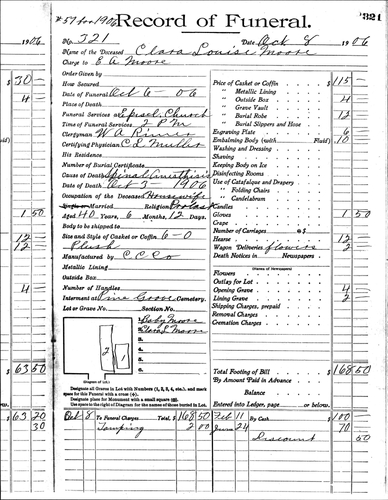 # 57 for 1906 Record of Funeral. 321
1906
No. 321 Date Oct 8 1906
Name of the Deceased Clara Louise Moore
Charge to E A Moore
Order Given by
Hour Secured
Date of Funeral Oct 6 - 06
Place of Death
Funeral Services Episcl. Church
Time of Funeral Services 2 P.M.
Clergyman W A
Certifying Physician C L Muller
His Residence
Number of Burial Certificate
Cause of Death Spinal
Date of Death Oct 3 - 1906
Occupation of the Deceased Housewife
Single or Married Religion
Aged 40 Years, 6 Months, 12 Days.
Body to be shipped to
Size and Style of Casket or Coffin 6-0
Plush
Manufactured by C.C.Co
Metallic Lining
Outside Box
Number of Handles
Interment at Pine Grove Cemetery.
Lot or Grave No. Section No.
1. Baby Moore
2. Clara L Moore
3.
4.
5.
6.
2 1
(Diagram of Lot.)
Designate all Graves in Lot with Numbers (1, 2, 3, 4, etc.), and mark
space for this Funeral with a cross (+).
Designate place for Monument with a small square (□).
Use space to the right of Diagram for names of those buried in Lot.
Price of Casket or Coffin $ 115 —
" Metallic Lining
" Outside Box 4
" Grave Vault
" Burial Robe 12
" Burial Slippers and Hose
Engraving Plate 6
Embalming Body (with Fluid) 10
Washing and Dressing
Shaving
Keeping Body on Ice
Disinfecting Rooms
Use of Catafalque and Drapery
" Folding Chairs
" Candelabrum
Candles
Gloves 1 50
Crape
Number of Carriages @ $
Hearse 12
Wagon Deliveries flowers 2
Death Notices in Newspapers
(Names of Newspapers)
Flowers
Outlay for Lot
Opening Grave 4
Lining Grave 2
Shipping Charges, prepaid
Removal Charges
Cremation Charges
Total Footing of Bill $ 168 50
By Amount Paid in Advance
Balance
Entered into Ledger, page or below.
Oct 8 To Funeral Charges Total, $ 168 50 Feb 11 By Cash 100 —
2 00 June 24 70
Discount 50
$ 30 —
4 —
1 50
12
12
4
$ 63 50
63 20
30